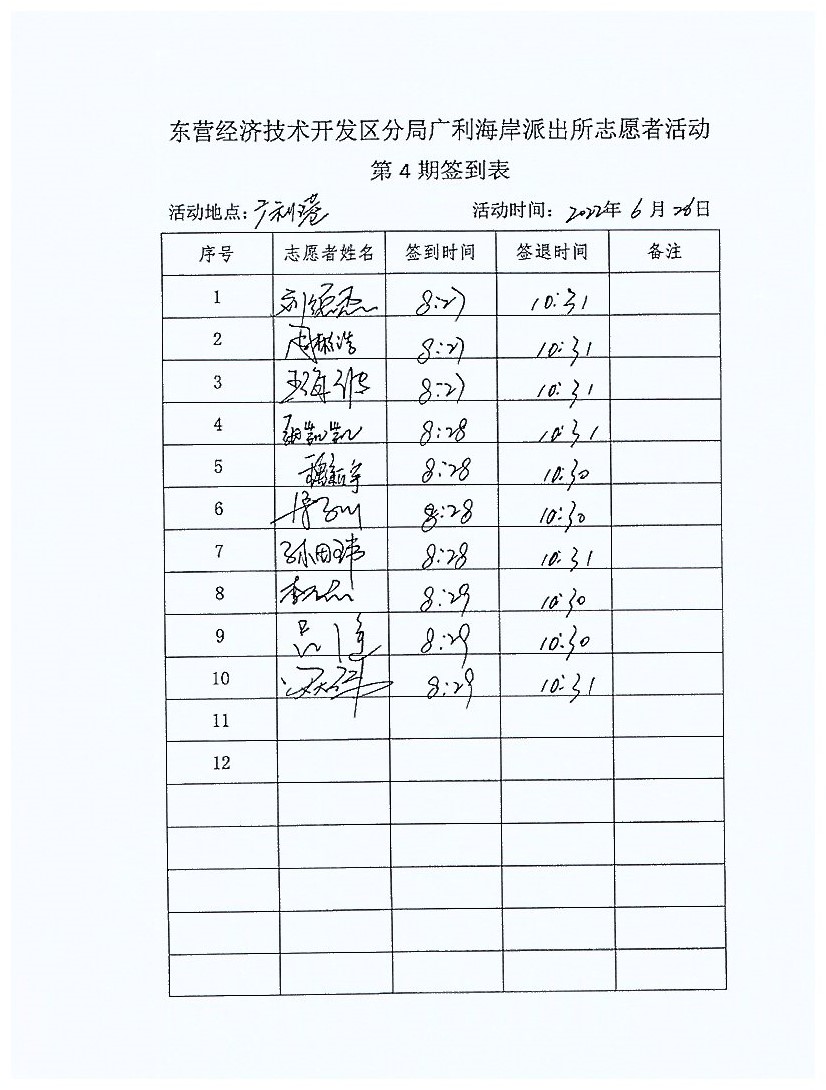 东营经济技术开发区分局广利海岸派出所志愿者活动
第 4 期签到表
活动地点：广利港 活动时间：2022年 6 月 26日
序号 志愿者姓名 签到时间 签退时间 备注
1 刘德杰 8:27 10:31
2 周彬浩 8:27 10:31
3 王海 8:27 10:31
4 胡凯凯 8:28 10:31
5 魏新宇 8:28 10:30
6 8:28 10:30
7 孙国玮 8:28 10:31
8 李 8:29 10:30
9 吕 8:29 10:30
10 8:29 10:31
11
12